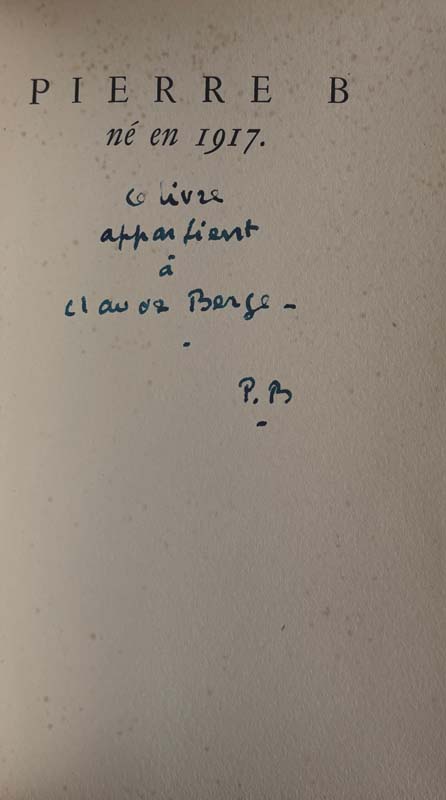 PIERRE B
né en 1917.
Ce livre
appartient
à
Claude Berge -
P. B